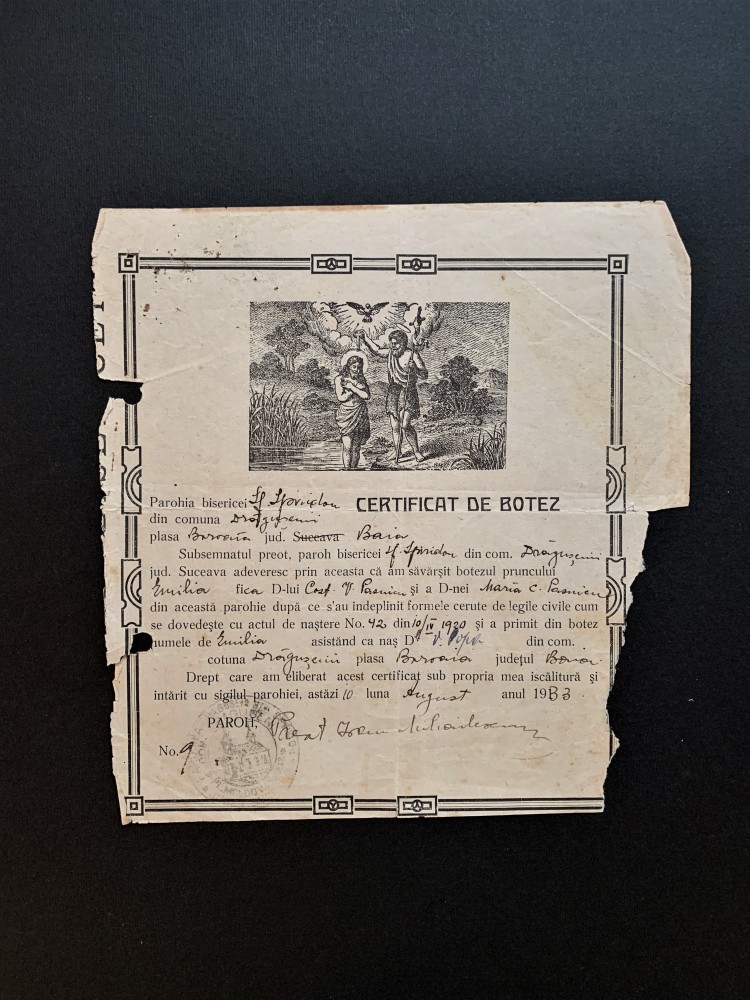 Parohia bisericei Sf. Spiridon CERTIFICAT DE BOTEZ
din comuna Drăgușenii
plasa jud. Suceava Baia
Subsemnatul preot, paroh bisericei Sf. Spiridon din com. Drăgușenii
jud. Suceava adeveresc prin aceasta că am săvârșit botezul pruncului
Emilia fica D-lui Cost. V. și a D-nei Maria C.
din această parohie după ce s'au indeplinit formele cerute de legile civile cum
se dovedește cu actul de naștere No. 42 din 10/IV 1920 și a primit din botez
numele de Emilia asistând ca naș D V. Popa din com.
cotuna Drăgușenii plasa județul
Drept care am eliberat acest certificat sub propria mea iscălitură și
intărit cu sigilul parohiei, astăzi 10 luna August anul 1933
PAROH, Preot Ioan
No. 9